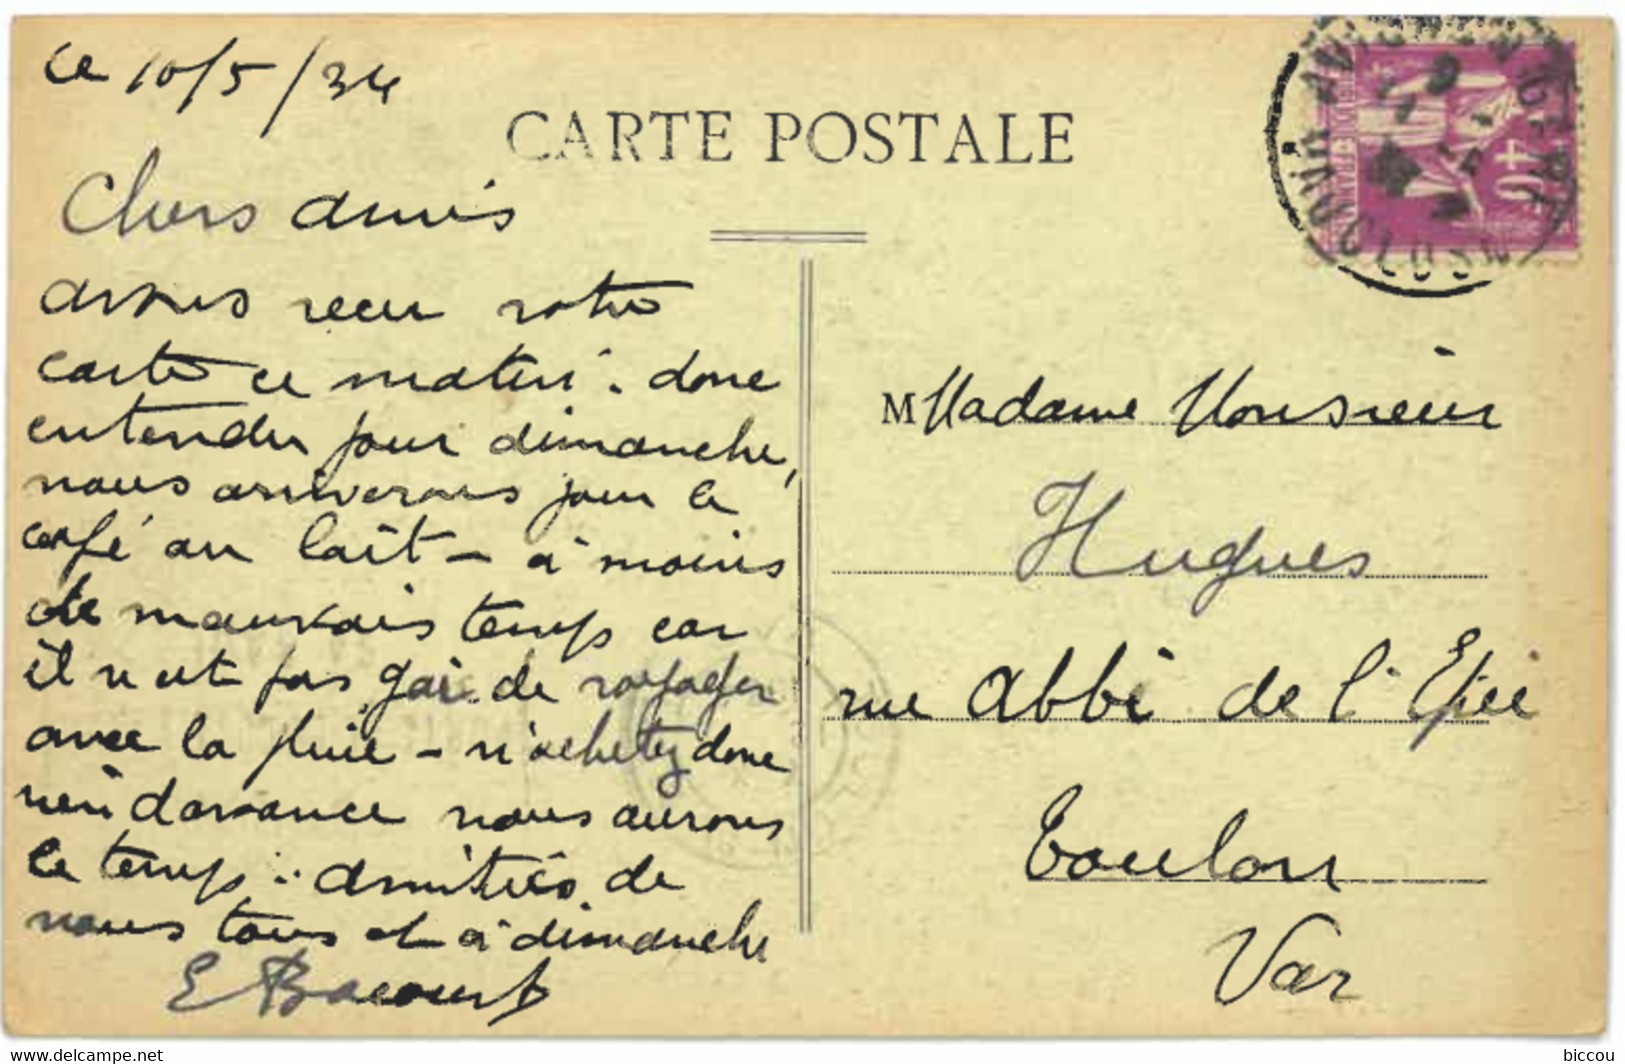 ce 10/5/34
CARTE POSTALE
Chers amis
avons recu votre
carte ce matin. donc
entendu pour dimanche,
nous arriverons pour le
café au lait - à moins
de mauvais temps car
il n'est pas gai de voyager
avec la pluie - n'achetez donc
rien d'avance nous aurons
le temps.. amitiés de
nous tous et à dimanche
E Bacourt
M Madame Monsieur
Hugues
rue Abbé de l'Epée
Toulon
Var
40
VAUCLUSE
delcampe.net
biccou